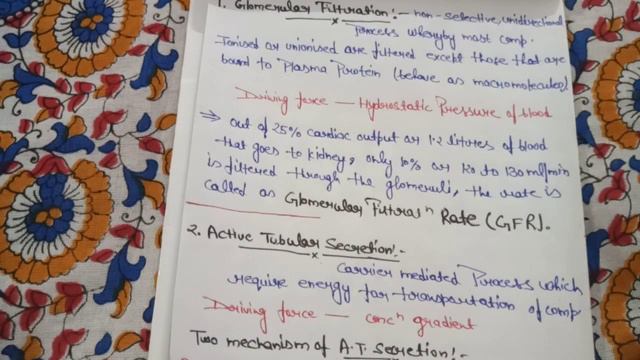 1. Glomerular Filtration:- non-selective, unidirectional
Process whereby most comp.
Ionised or unionised are filtered except those that are
bound to Plasma Protein (behave as macromolecules)
Driving force — Hydrostatic Pressure of blood
⇒ out of 25% cardiac output or 1.2 litures of blood
that goes to kidney, only 10% or 120 to 130 ml/min
is filtered through the glomeruli, the rate is
called as Glomerular Filtraⁿ Rate (GFR).
2. Active Tubular Secretion:-
Carrier mediated Process which
require energy for transportation of comp
Driving force — concⁿ gradient
Two mechanism of A.T. Secretion:-